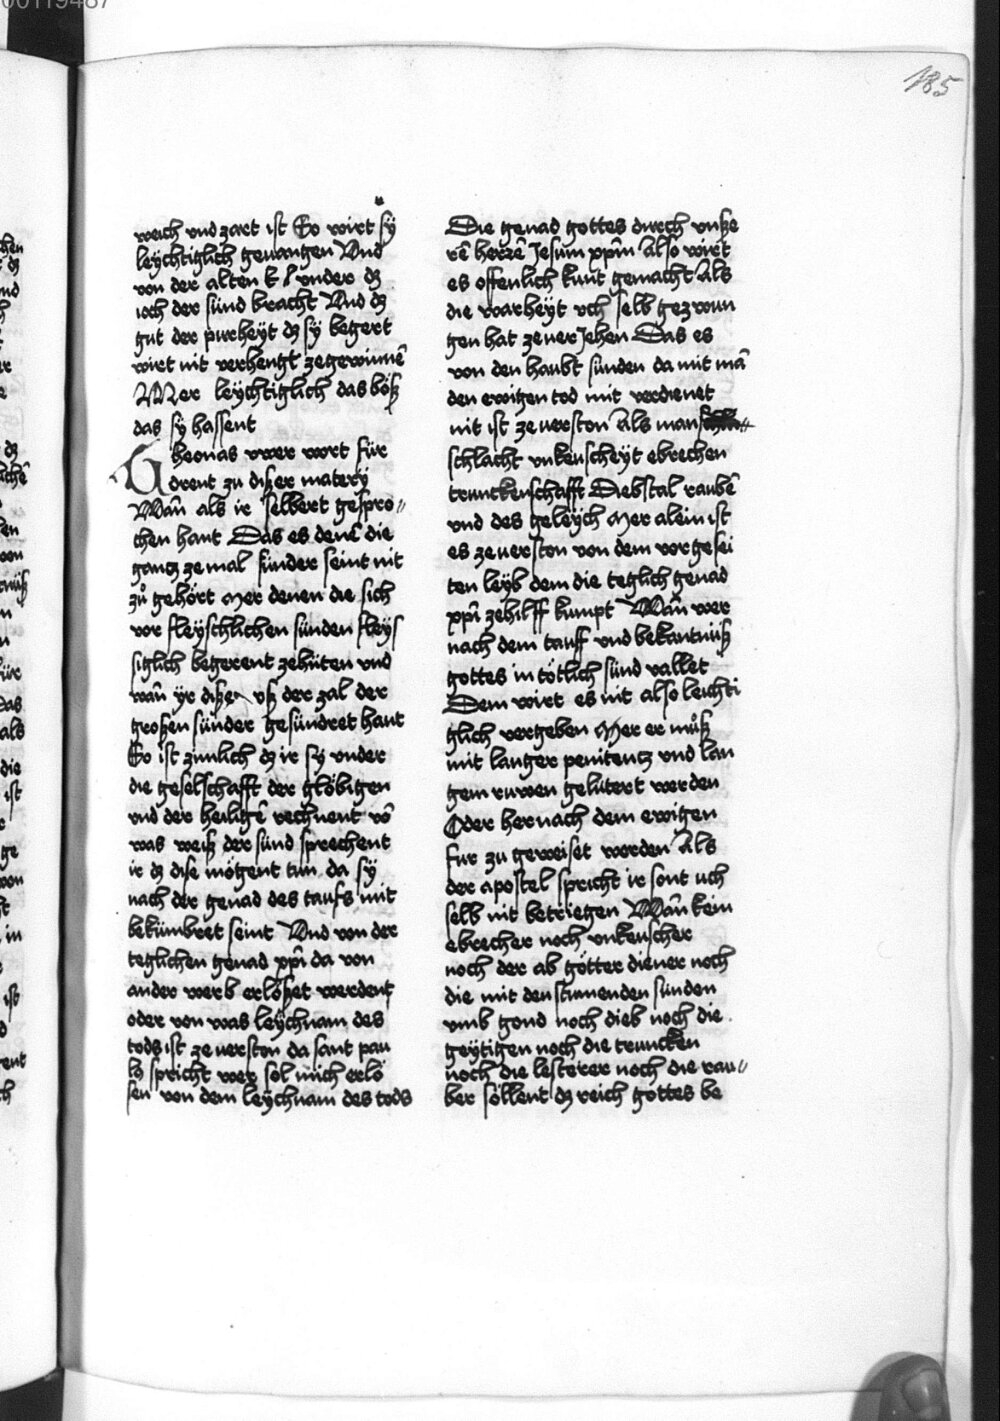 185
weich vnd zart ist So wirt sÿ
leÿchtiglich geuangen Vnd
von der alten E / vnder dz
ioch der sünd bracht Vnd dz
gut der purheÿt dz sÿ begert
wirt nit verhengt zegewinnē
Mer leÿchtiglich das böß
das sÿ hassent
Gheonas vwer wort für
drent zu dißer matery
Wañ als ir selbert gespro//
chen hant Das es denē die
gantz zemal sünder seint nit
zů gehört Mer denen die sich
vor fleÿschlichen sünden fleÿs
siglich begerent zehüten vnd
wañ ÿr diße vß der zal der
großen sünder gesündret hant
So ist zimlich dz ir sÿ vnder
die geselschafft der glöbigen
vnd der heiligē rechnent vō
was weiß der sünd sprechent
ir dz dise mögent tun da sÿ
nach der genad des taufs mit
bekümbret seint Vnd von der
teglichen genad xp̄i da von
ander werb erlößet werdent
oder von was leÿchnam des
tods ist ze uerston da sant pau
ls spricht wer sol mich erlö
sen von dem leÿchnam des tods
Die genad gottes durch vnße
rē herrē Jesum xp̄m Also wirt
es offenlich kunt gemacht Als
die warheÿt vch selb gezwun
gen hat ze uer Jehen Das es
von den haubt sünden da mit mā
den ewigen tod mit verdienet
nit ist ze uerston Als man
schlacht vnkeuscheÿt ebrechen
trunckenschafft Diebstal raubē
vnd des geleÿch Mer alein ist
es ze uerston von dem vorgesei
ten leÿb dem die teglich genad
xp̄i zehilff kumpt Wañ wer
nach dem tauff vnd bekantnüß
gottes in tötlich sünd vallet
Dem wirt es nit also leichti
glich vergeben Mer er můß
mit langer penitentz vnd lan
gem ruwen gelütert werden
Oder hernach dem ewigen
fur zu geweiset werden Als
der apostel spricht ir sont uch
selb nit betriegen Wañ kein
ebrecher noch vnkeuscher
noch der ab götter diener noch
die mit den stumenden sünden
vmb gond noch dieb noch die
geÿtigen noch die truncken
noch die lesterer noch die rau//
ber söllent dz reich gottes be